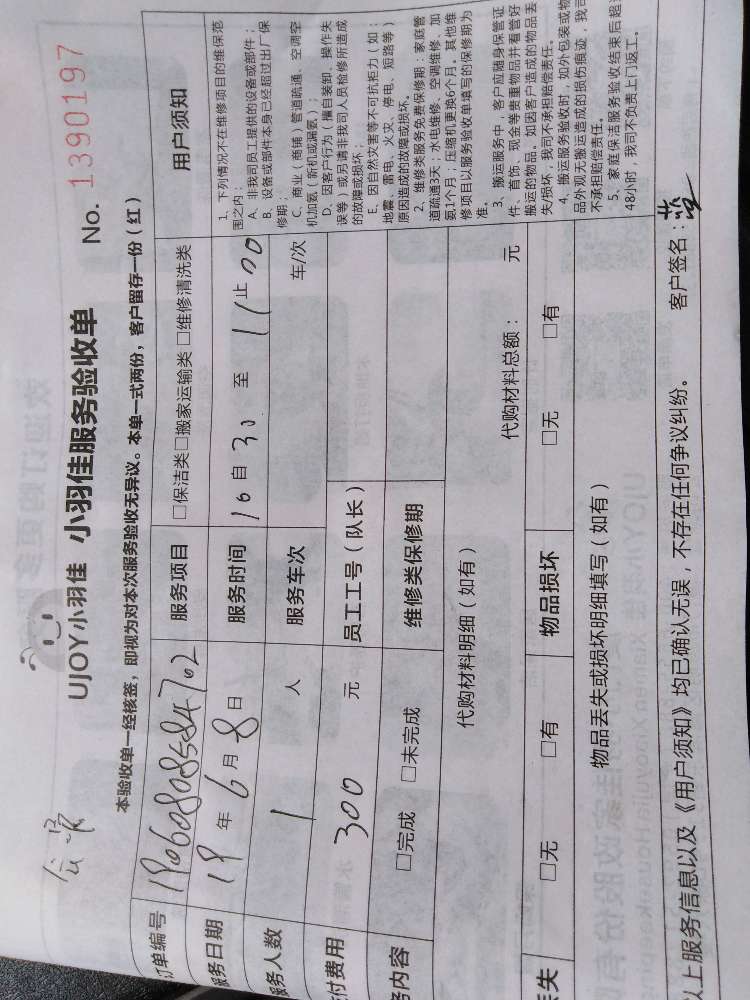 会员
UJOY小羽佳 小羽佳服务验收单 No. 1390197
本验收单一经核签，即视为对本次服务验收无异议。本单一式两份，客户留存一份（红）
订单编号 190608085847 02
服务项目 □保洁类□搬家运输类 □维修清洗类
服务日期 19 年 6 月 8 日
服务时间 10 自 30 至 11 止 00
服务人数 1 人
服务车次 车/次
付费用 300 元
员工工号（队长）
务内容 □完成 □未完成
维修类保修期
代购材料明细（如有） 代购材料总额： 元
丢失 □无 □有
物品损坏 □无 □有
物品丢失或损坏明细填写（如有）
以上服务信息以及《用户须知》均已确认无误，不存在任何争议纠纷。 客户签名：
用户须知
1、下列情况不在维修项目的维保范
围之内：
A、非我司员工提供的设备或部件；
B、设备或部件本身已经超过出厂保
修期；
C、商业（商铺）管道疏通、空调空
机加氨（新机或漏氨）；
D、因客户行为（擅自装卸、操作失
误等）或另请非我司人员检修所造成
的故障或损坏；
E、因自然灾害等不可抗拒力（如：
地震、雷电、火灾、停电、短路等）
原因造成的故障或损坏。
2、维修类服务免费保修期：家庭管
道疏通3天；水电维修、空调维修、加
氨1个月；压缩机更换6个月。其他维
修项目以服务验收单填写的保修期为
准。
3、搬运服务中，客户应随身保管证
件、首饰、现金等贵重物品并看管好
搬运的物品。如因客户造成的物品丢
失/损坏，我司不承担赔偿责任。
4、搬运服务验收时，如外包装或物
品外观无搬运造成的损伤痕迹，我司
不承担赔偿责任。
5、家庭保洁服务验收结束后超
48小时，我司不负责上门返工。